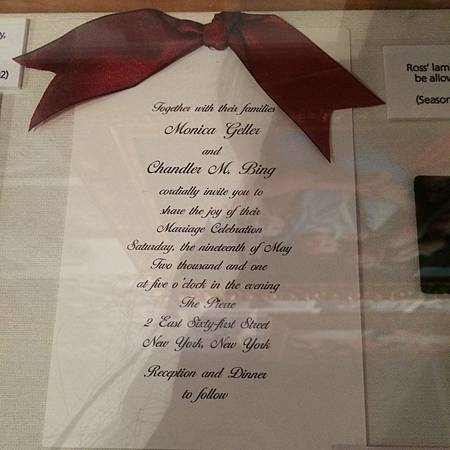 Together with their families
Monica Geller
and
Chandler M. Bing
cordially invite you to
share the joy of their
Marriage Celebration
Saturday, the nineteenth of May
Two thousand and one
at five o'clock in the evening
The Pierre
2 East Sixty-first Street
New York, New York
Reception and Dinner
to follow
y,
2)
Ross' lam
be allow
(Season